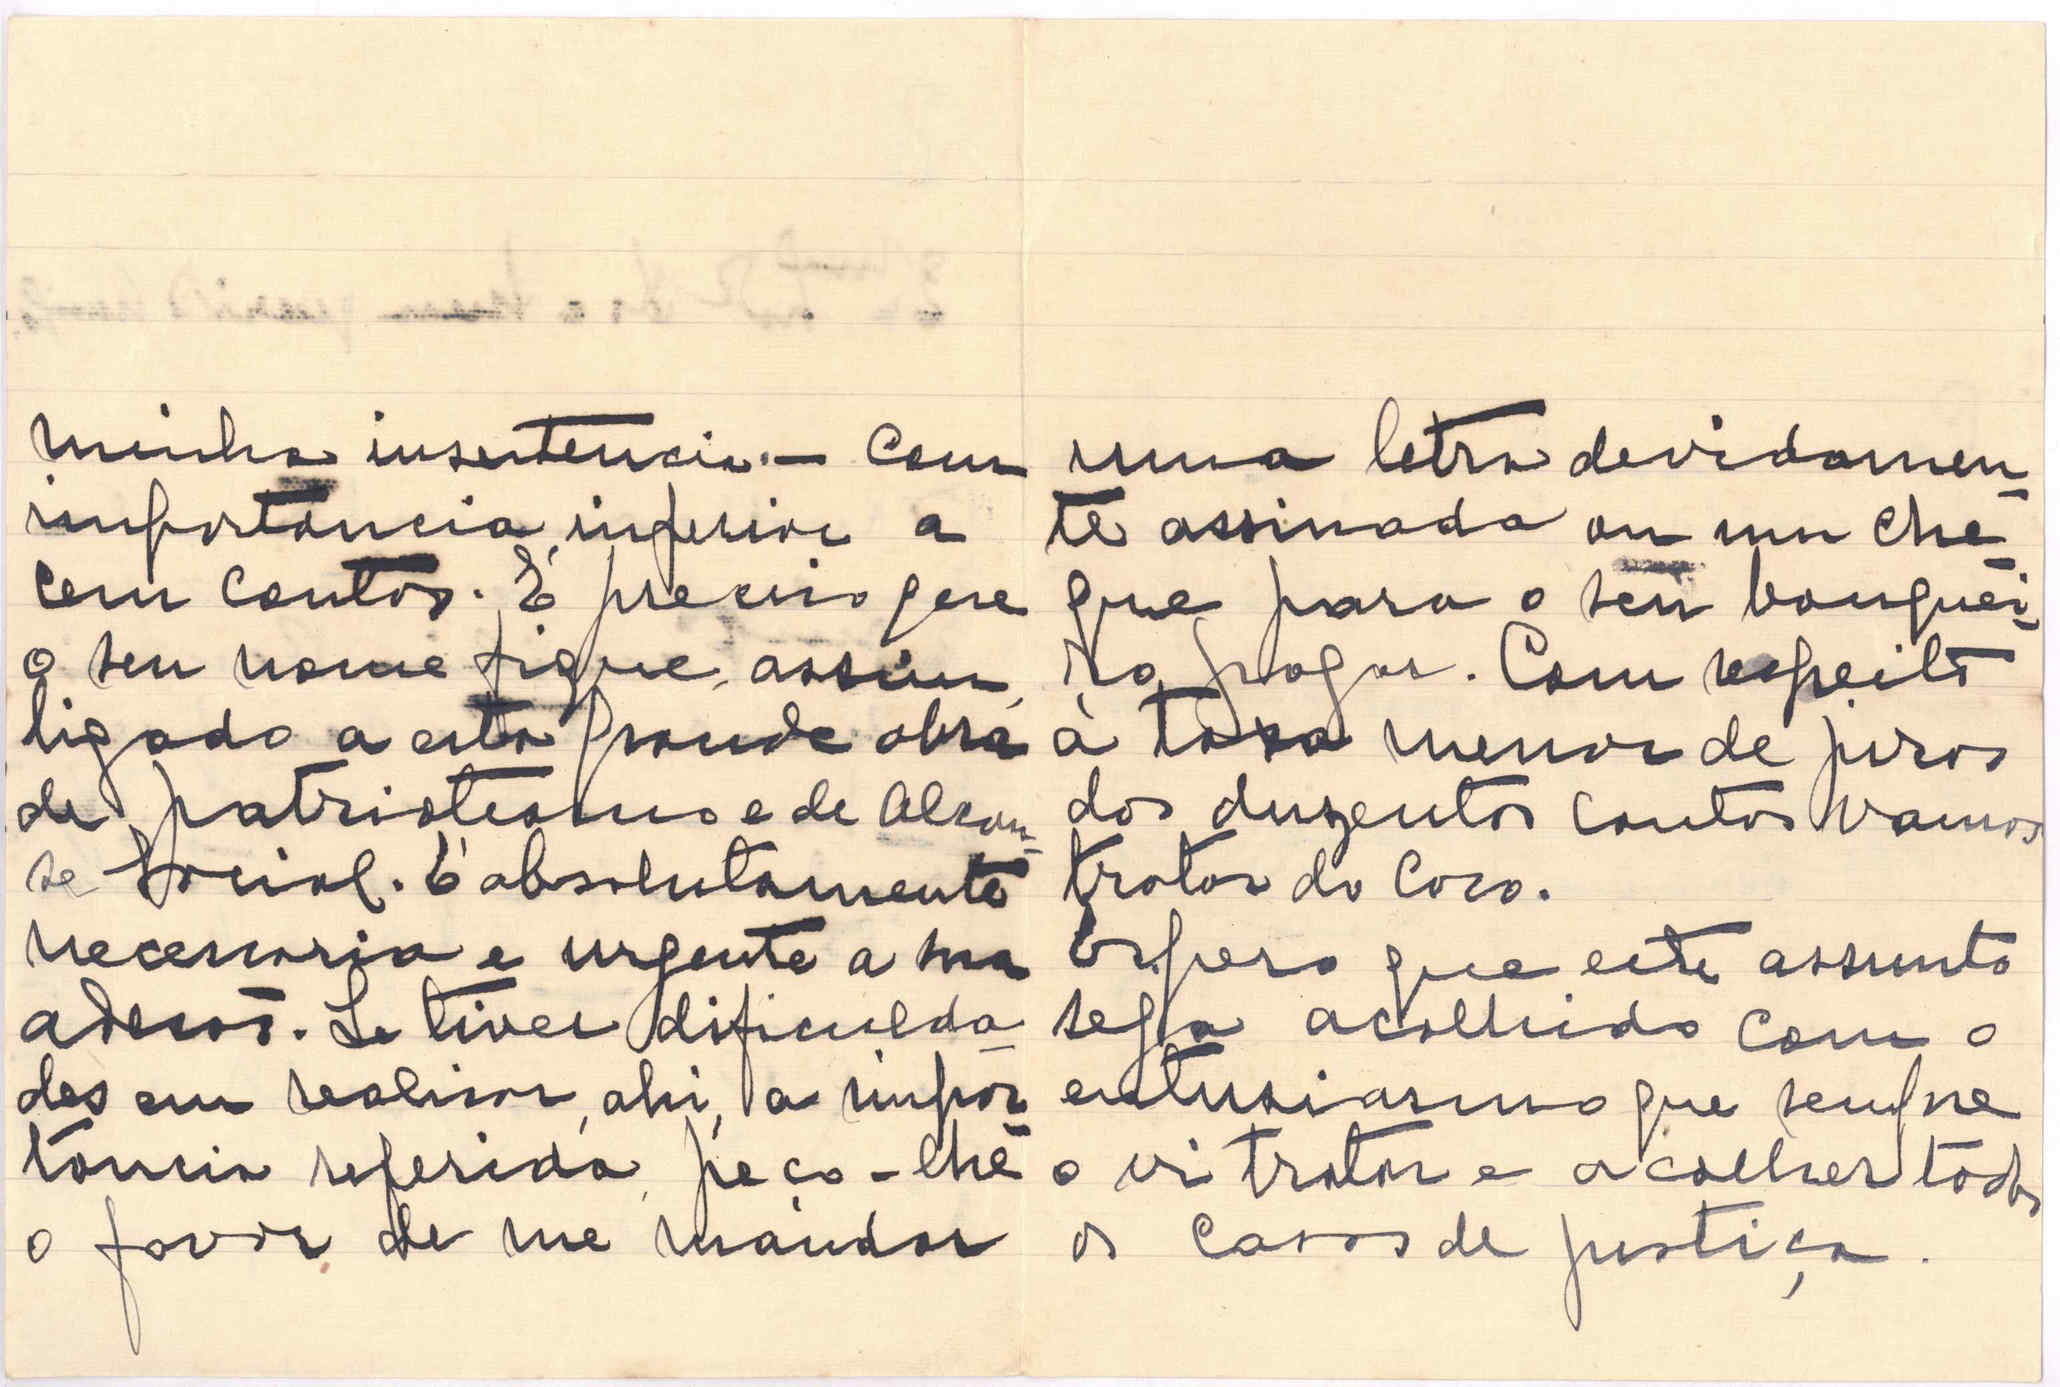 minha insistencia. — Com
importancia inferior a
cem contos. É preciso que
o seu nome fique, assim,
ligado a esta grande obra
de patriotismo e de Alcan-
se Social. É absolutamente
necessaria e urgente a sua
adesão. Se tiver dificulda-
des em realisar, ahi, a impor
tancia referida, peço-lhe
o favor de me mandar
uma letra devidamen-
te assinada ou um che-
que para o seu banquei-
ro pagar. Com respeito
à taxa menor de juros
dos duzentos contos vamos
tratar do caso.
Espero que este assunto
seja acolhido com o
entusiasmo que sempre
o vi tratar e acolher todos
os casos de justiça.